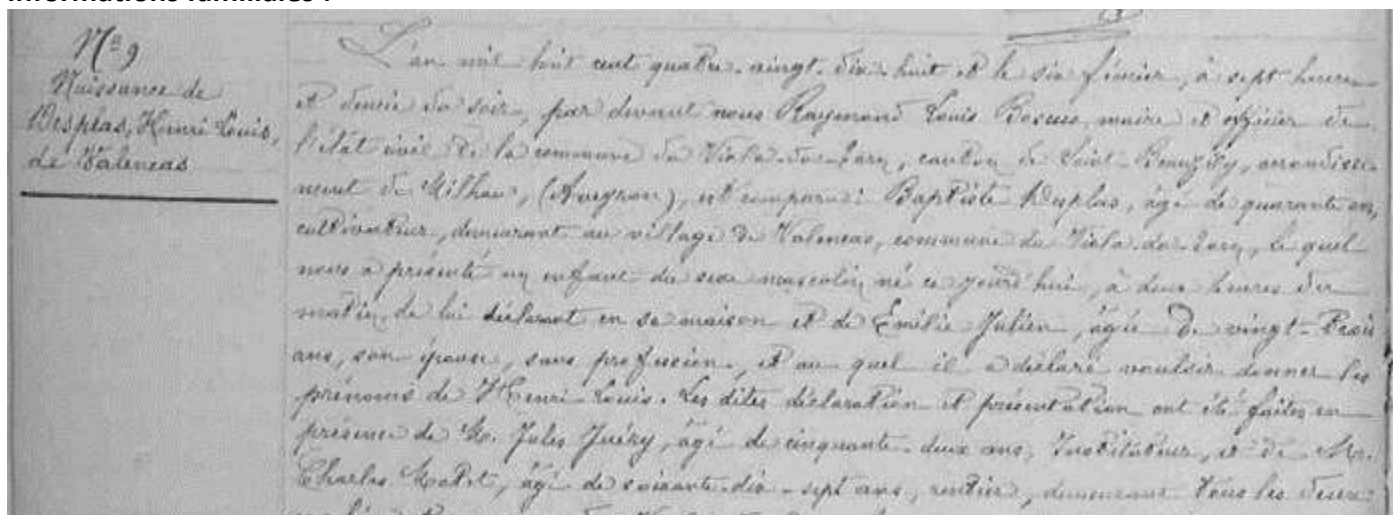 Informations familiales :
Nº 9
Naissance de
Desplas, Henri Louis,
de Valencas
L'an mil huit cent quatre-vingt-dix-huit et le six février, à sept heures
et demie du soir, par devant nous Raymond Louis maire et officier de
l'état civil de la commune du Viala-du-Tarn, canton de Saint-Beauzély, arrondisse-
ment de Milhau, (Aveyron), est comparu : Baptiste Desplas, âgé de quarante ans,
cultivateur, demeurant au village de Valencas, commune du Viala-du-Tarn, le quel
nous a présenté un enfant du sexe masculin né ce jourd'hui, à deux heures du
matin, de lui déclarant en sa maison et de Émilie Julien, âgée de vingt-trois
ans, son épouse, sans profession, et au quel il a déclaré vouloir donner les
prénoms de Henri Louis. Les dites déclaration et présentation ont été faites en
présence de M. Jules Juéry, âgé de cinquante-deux ans, Instituteur, et de Mr.
Charles âgé de soixante-dix-sept ans, rentier, demeurant tous les deux